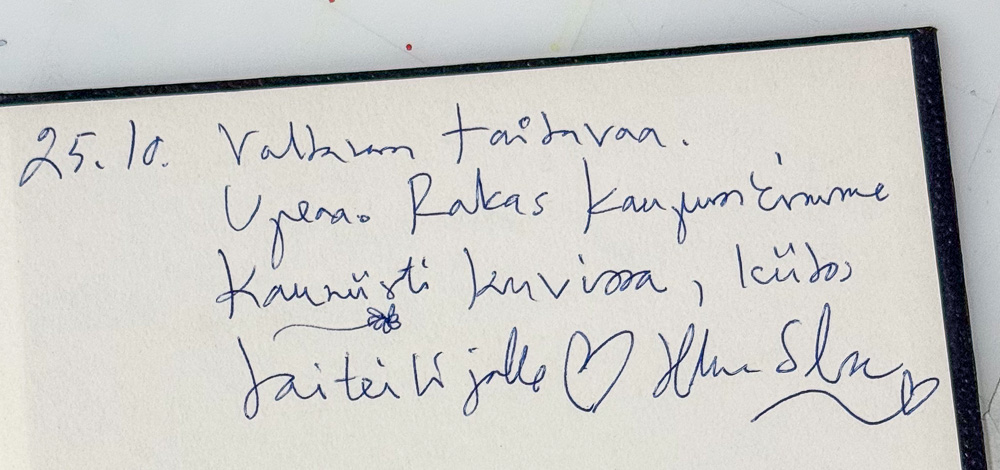 25.10. Valtavan taitavaa.
Upeaa. Rakas kaupunkimme
kauniisti kuvissa, kiitos
taiteilijalle